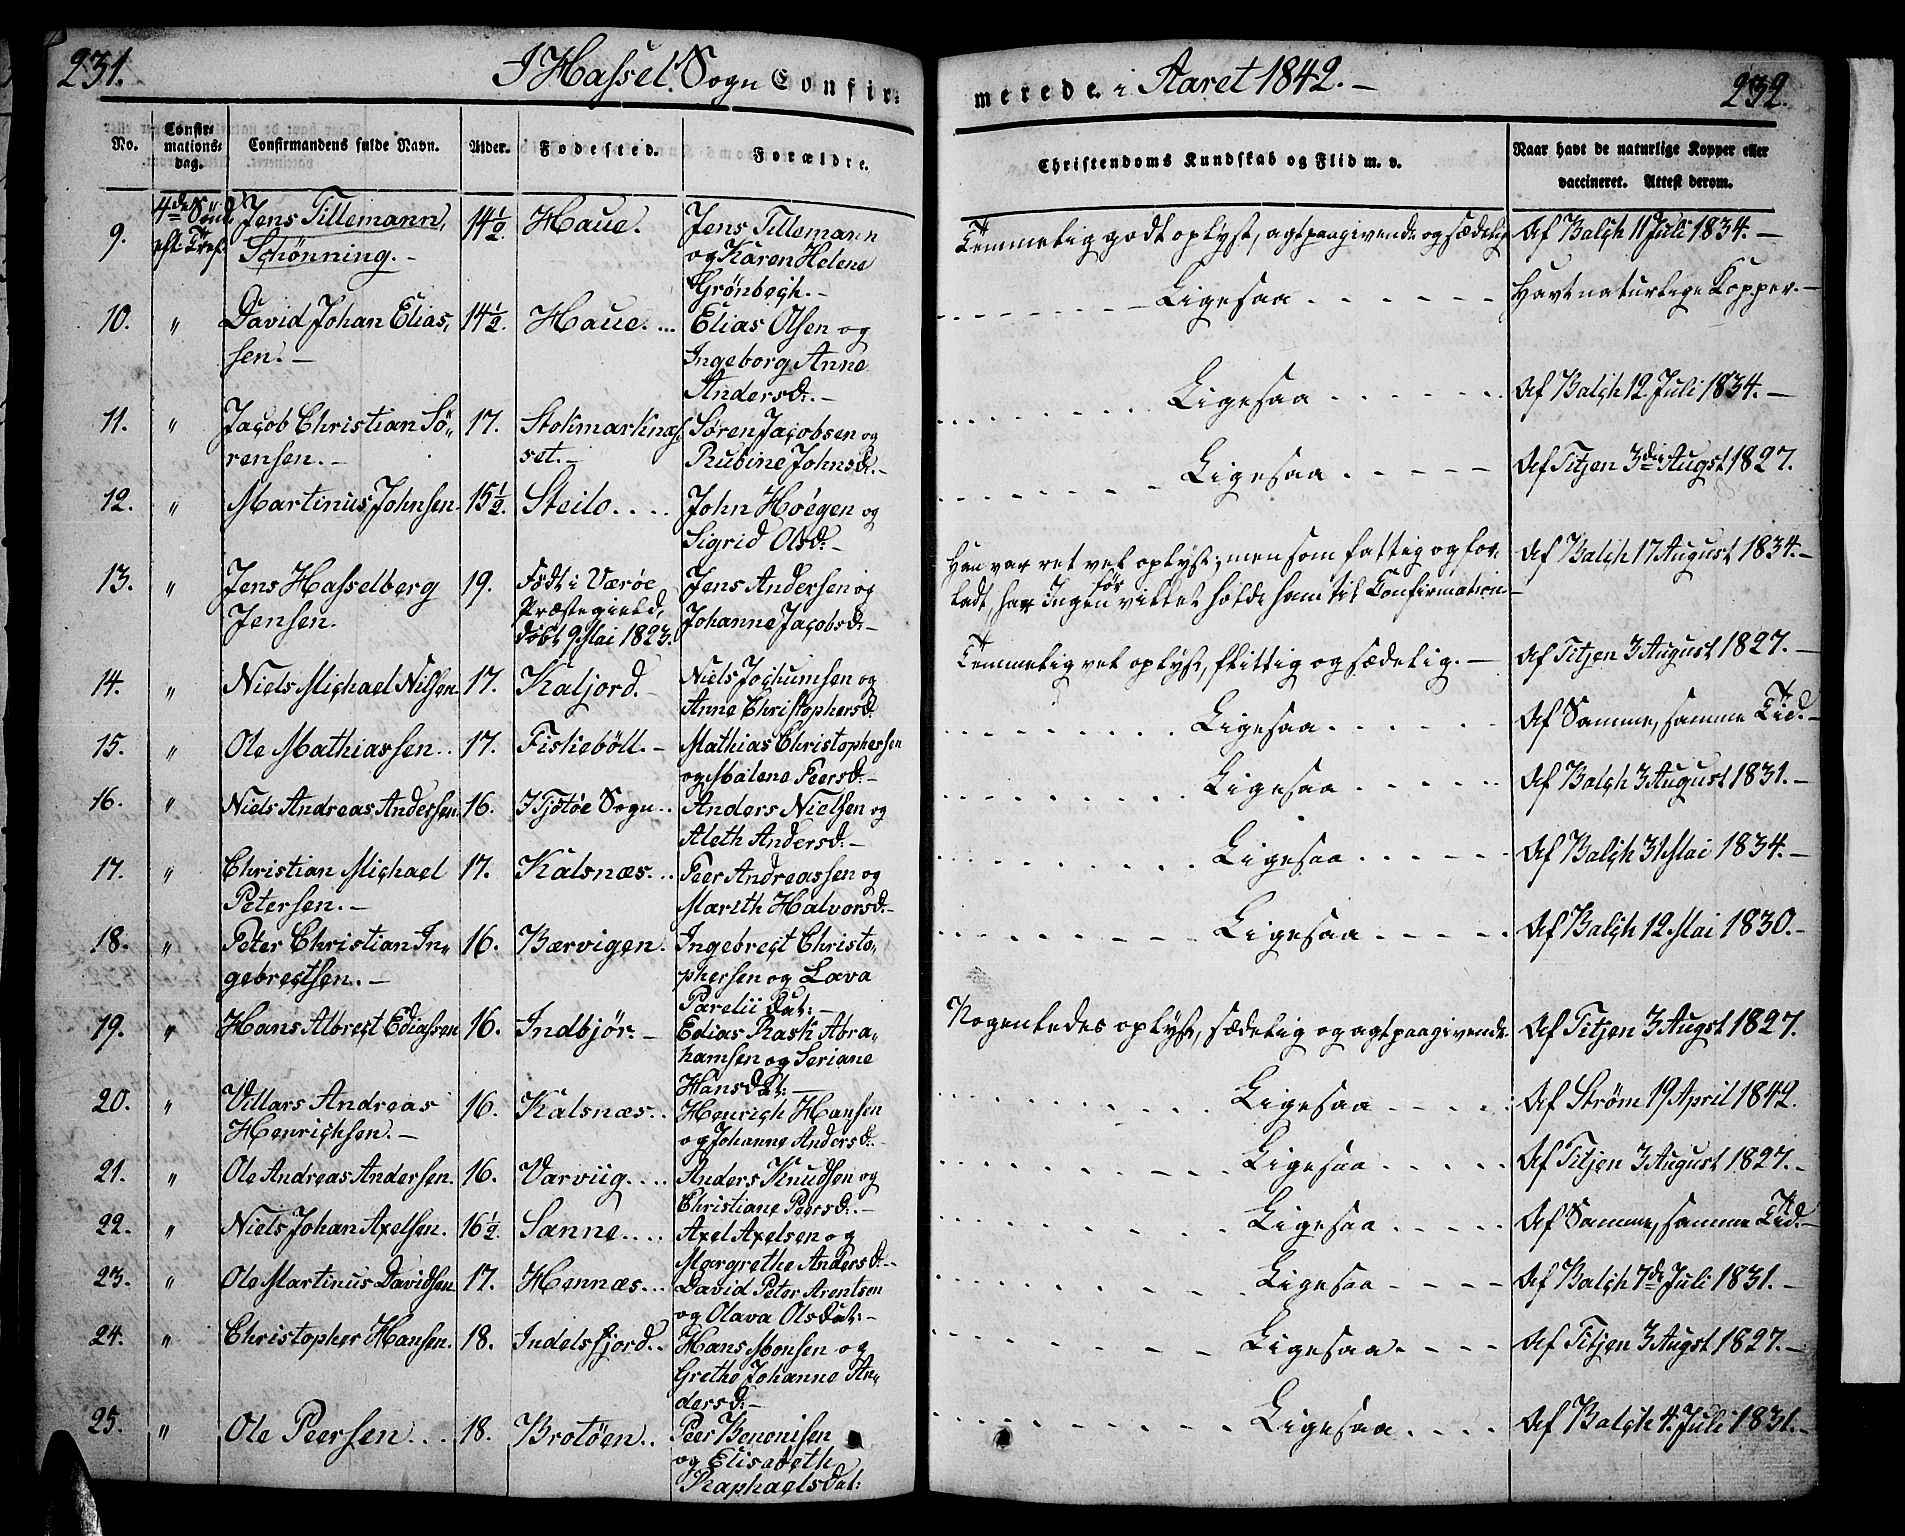 231.
I Hassel Sogn Confir-
merede i Aaret 1842.-
232.
No.
Confir-
mations-
dag.
Confirmandens fulde Navn.
Alder.
Fødested.
Forældre.
Christendoms Kundskab og Flid m. v.
Naar havt de naturlige Kopper eller
vaccineret. Attest derom.
9. 4de Sönd. Jens Tillemann 14½ Haue. Jens Tillemann
eft. Tref. Schønning.- og Karen Helene
Grönbech.-
Temmelig godt oplyst, agtpaagivende og sædelig Af Balch 11 Juli 1834.-
10. " David Johan Elias, 14½. Haue... Elias Olsen og
sen.- Ingeborg Anne
Andersd:-
Ligesaa Havt naturlige Kopper.-
11. " Jacob Christian Sö, 17. Stokmarknæs, Sören Jacobsen og
rensen.- set.- Rubine Johnsd:-
Ligesaa Af Balch 12. Juli 1834.-
12. " Martinus Johnsen. 15½. Steilo.... John Hoegen og
Sigrid Olsd:-
Ligesaa Af Titjen 3die Augst 1827.
13. " Jens Hasselberg 19. Födt i Værøe Jens Andersen og
Jensen. Præstegield, Johanne Jacobsd:-
döbt 9 Mai 1823.
Han var ret vel oplyst; men som fattig og for-
ladt, har Ingen før villet holde ham til Confirmation- Af Balch 17 August 1834.-
14. " Niels Michael Nilsen. 17. Kaljord.- Niels Jochumsen og
Anne Christophersd:
Temmelig vel oplyst, flittig og sædelig.- Af Titjen 3 August 1827.-
15. " Ole Mathiassen.. 17. Fiskebøll.- Mathias Christophersen
og Malene Peersd:-
Ligesaa Af Samme, samme Tid.-
16. " Niels Andreas Andersen. 16. I Tjøtøe Sogn.. Anders Nielsen og
Aleth Andersd:-
Ligesaa Af Balch 3 August 1831.-
17. " Christian Michael 17. Kalsnæs... Peer Andreassen og
Petersen.- Marith Halvorsd:-
Ligesaa Af Balch 31 Mai 1834.-
18. " Peter Christian In- 16. Bærvigen. Ingebrect Christo,
gebrectsen.- phersen og Lava
Parelii Dat:-
Ligesaa Af Balch 12. Mai 1830.-
19. " Hans Albrect Ediassen 16. Indbjör.- Edias Rask Abra-
hamsen og Seriane
Hansdat:-
Nogenledes oplyst, sædelig og agtpaagivende. Af Titjen 3 Augst 1827.
20. " Villars Andreas 16. Kalsnæs.. Henrich Hansen
Henrichsen.- og Johanne Andersd:-
Ligesaa Af Strøm 19 April 1842.
21. " Ole Andreas Andersen. 16. Varviig.... Anders Knudsen og
Christiane Peersd:-
Ligesaa Af Titjen 3 August 1827.-
22. " Niels Johan Axelsen. 16½. Sanne.... Axel Axelsen og
Margrethe Andersd:-
Ligesaa Af Samme, samme Tid.-
23. " Ole Martinus Davidsen 17. Hennæs... David Peter Arentsen
og Olava Olsdat:-
Ligesaa Af Balch 7de Juli 1831.-
24. " Christopher Hansen. 18. Indelsfjord.. Hans Monsen og
Grethe Johanne An-
dersd:-
Ligesaa Af Titjen 3 Augst 1827.-
25. " Ole Peersen... 18. Brotöen.. Peer Benonisen
og Elisabeth
Raphaelsdat:
Ligesaa Af Balch 4. Juli 1831.-